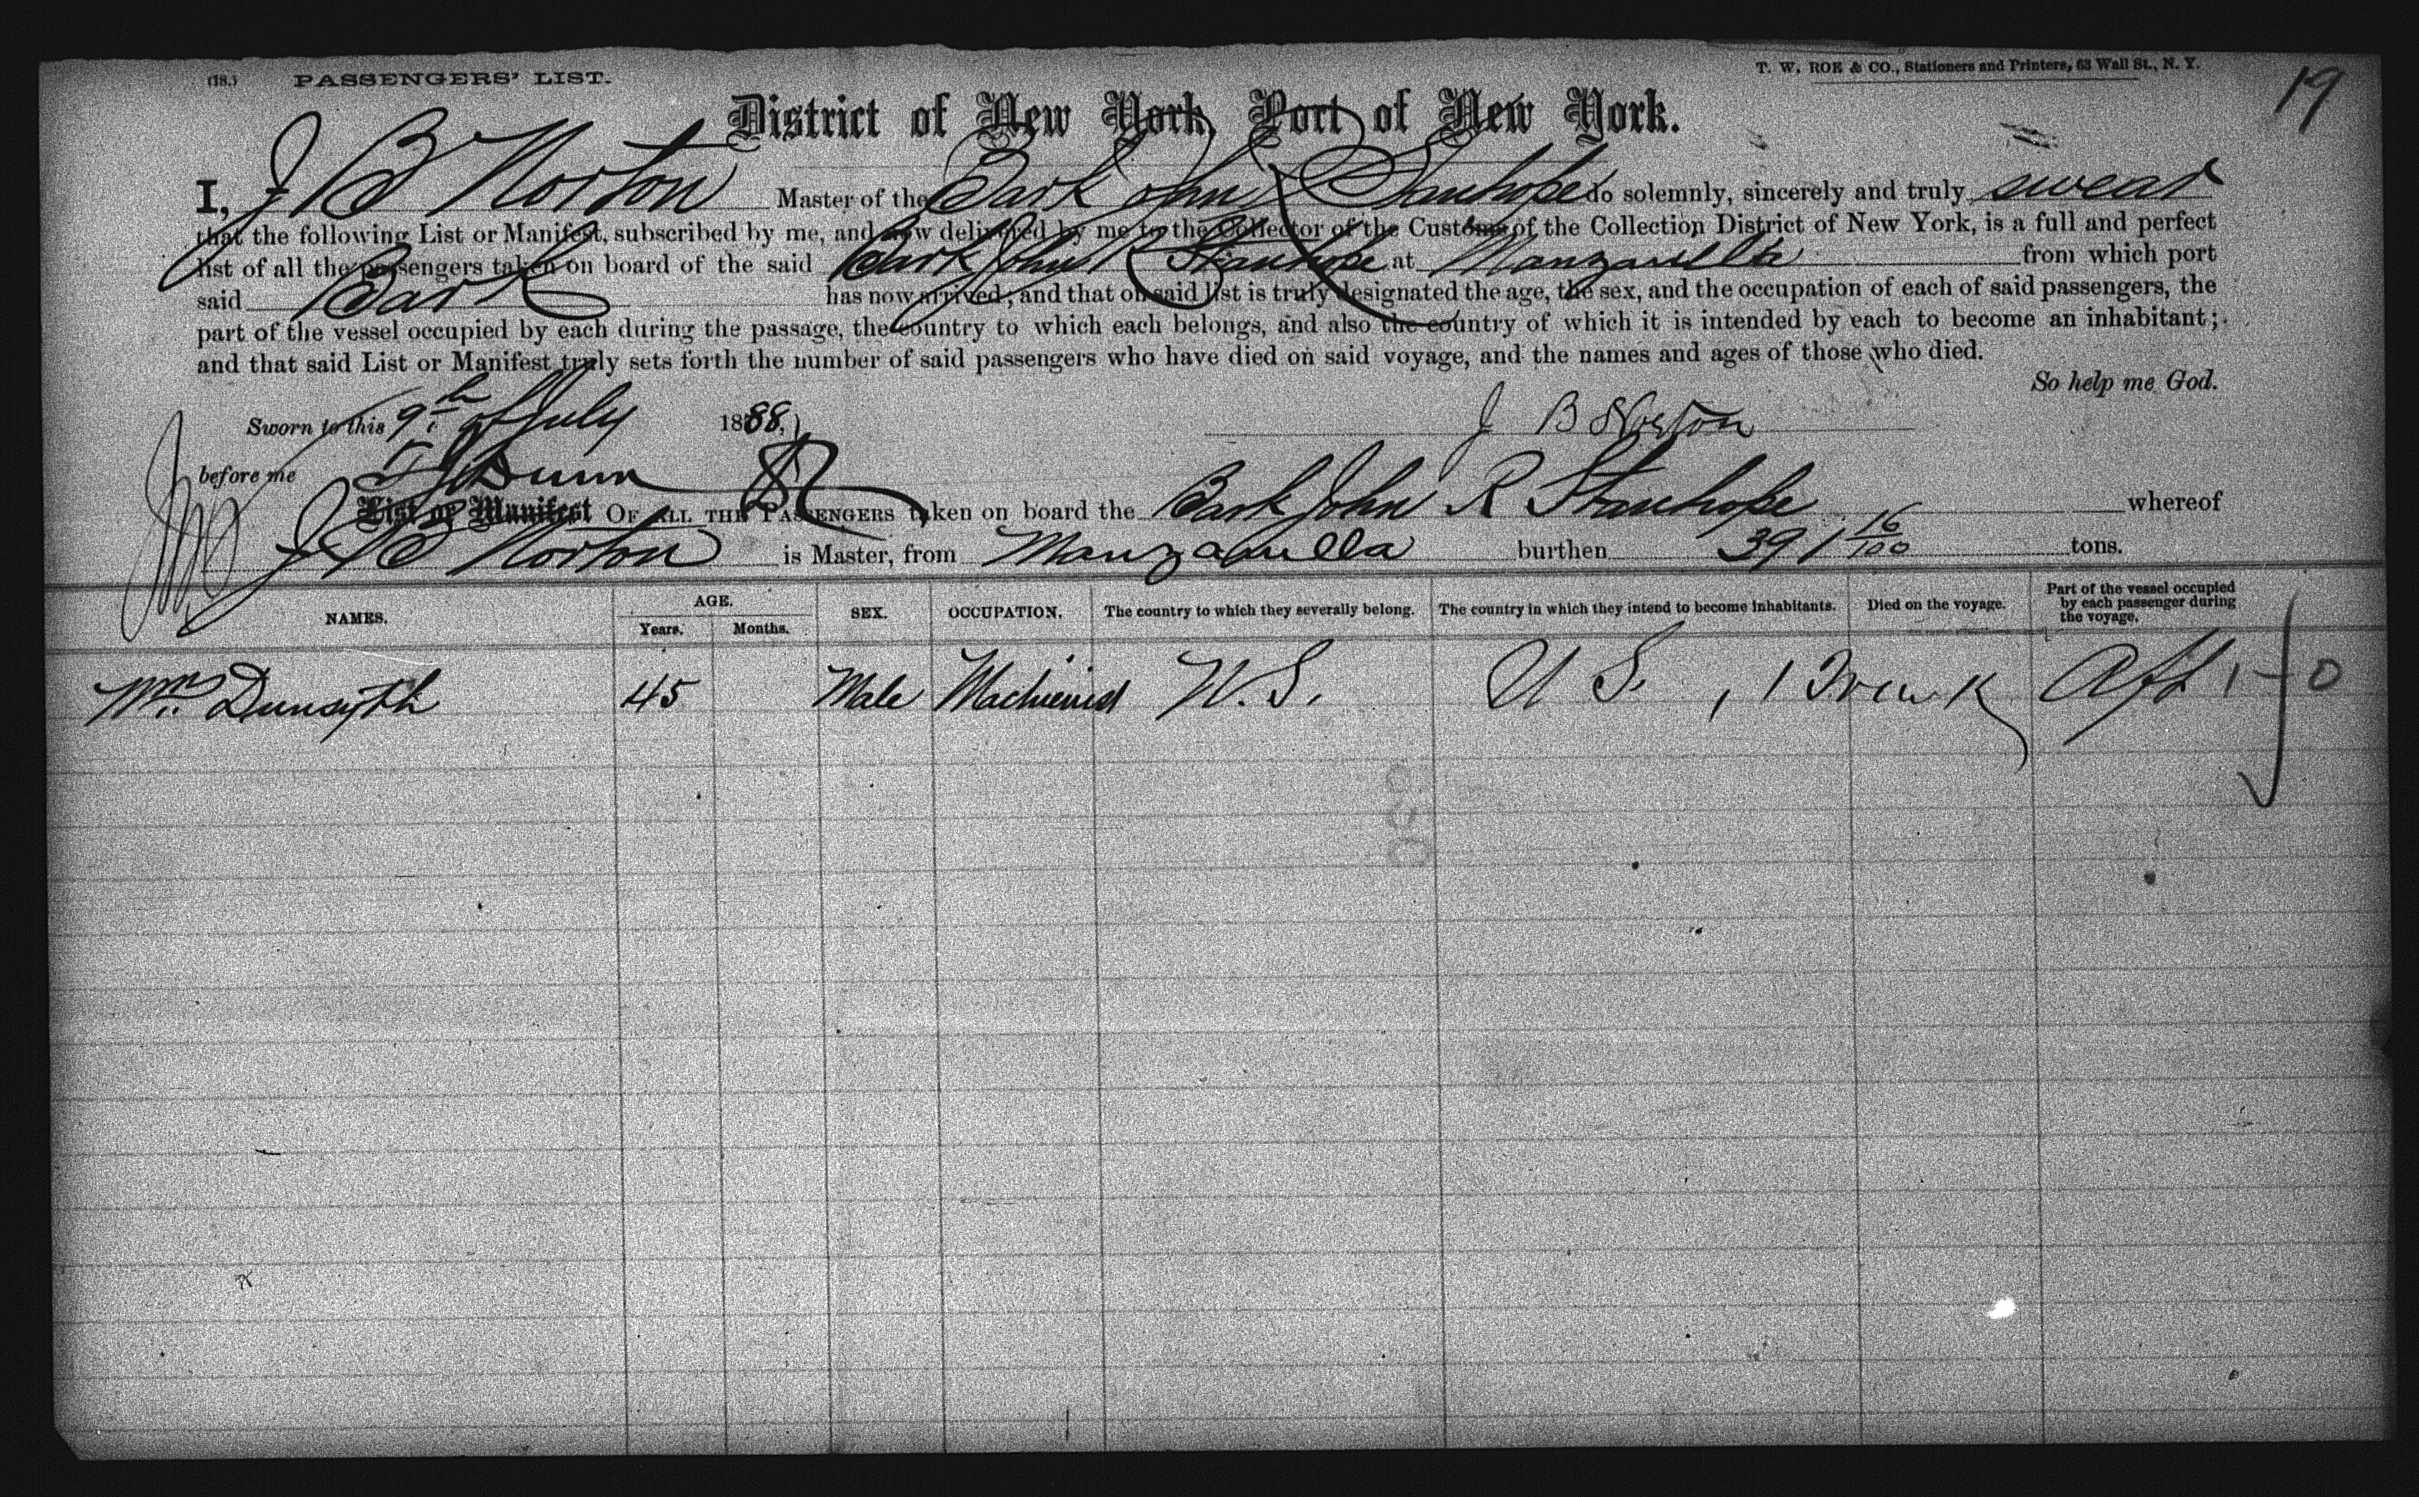 (18.) PASSENGERS' LIST.
T. W. ROE & CO., Stationers and Printers, 63 Wall St., N. Y.
19
District of New York, Port of New York.
I, J B Norton Master of the Bark John R Stanhope do solemnly, sincerely and truly swear
that the following List or Manifest, subscribed by me, and now delivered by me to the Collector of the Customs of the Collection District of New York, is a full and perfect
list of all the passengers taken on board of the said Bark John R Stanhope at Manzanilla from which port
said Bark has now arrived; and that on said list is truly designated the age, the sex, and the occupation of each of said passengers, the
part of the vessel occupied by each during the passage, the country to which each belongs, and also the country of which it is intended by each to become an inhabitant;
and that said List or Manifest truly sets forth the number of said passengers who have died on said voyage, and the names and ages of those who died.
So help me God.
Sworn to this 9th of July 1888,
J B Norton
before me Dunn
List or Manifest OF ALL THE PASSENGERS taken on board the Bark John R Stanhope whereof
J B Norton is Master, from Manzanilla burthen 391 16/100 tons.
NAMES. AGE. Years. Months. SEX. OCCUPATION. The country to which they severally belong. The country in which they intend to become inhabitants. Died on the voyage. Part of the vessel occupied by each passenger during the voyage.
Wm. Dunsyth 45 Male Machienist U.S. U S. , 1 Trunk Aft 1-0